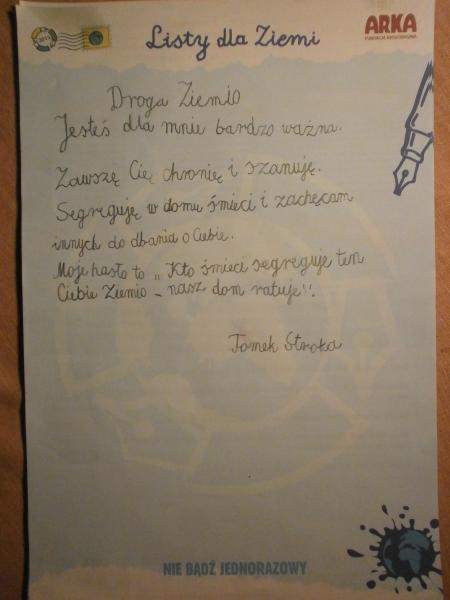 Listy dla Ziemi
ARKA
FUNDACJA EKOLOGICZNA
Droga Ziemio
Jesteś dla mnie bardzo ważna.
Zawszę Cię chronię i szanuję.
Segreguję w domu śmieci i zachęcam
innych do dbania o Ciebie.
Moje hasło to „ Kto śmieci segreguje ten
Ciebie Ziemio - nasz dom ratuje".
Tomek Stroka
NIE BĄDŹ JEDNORAZOWY